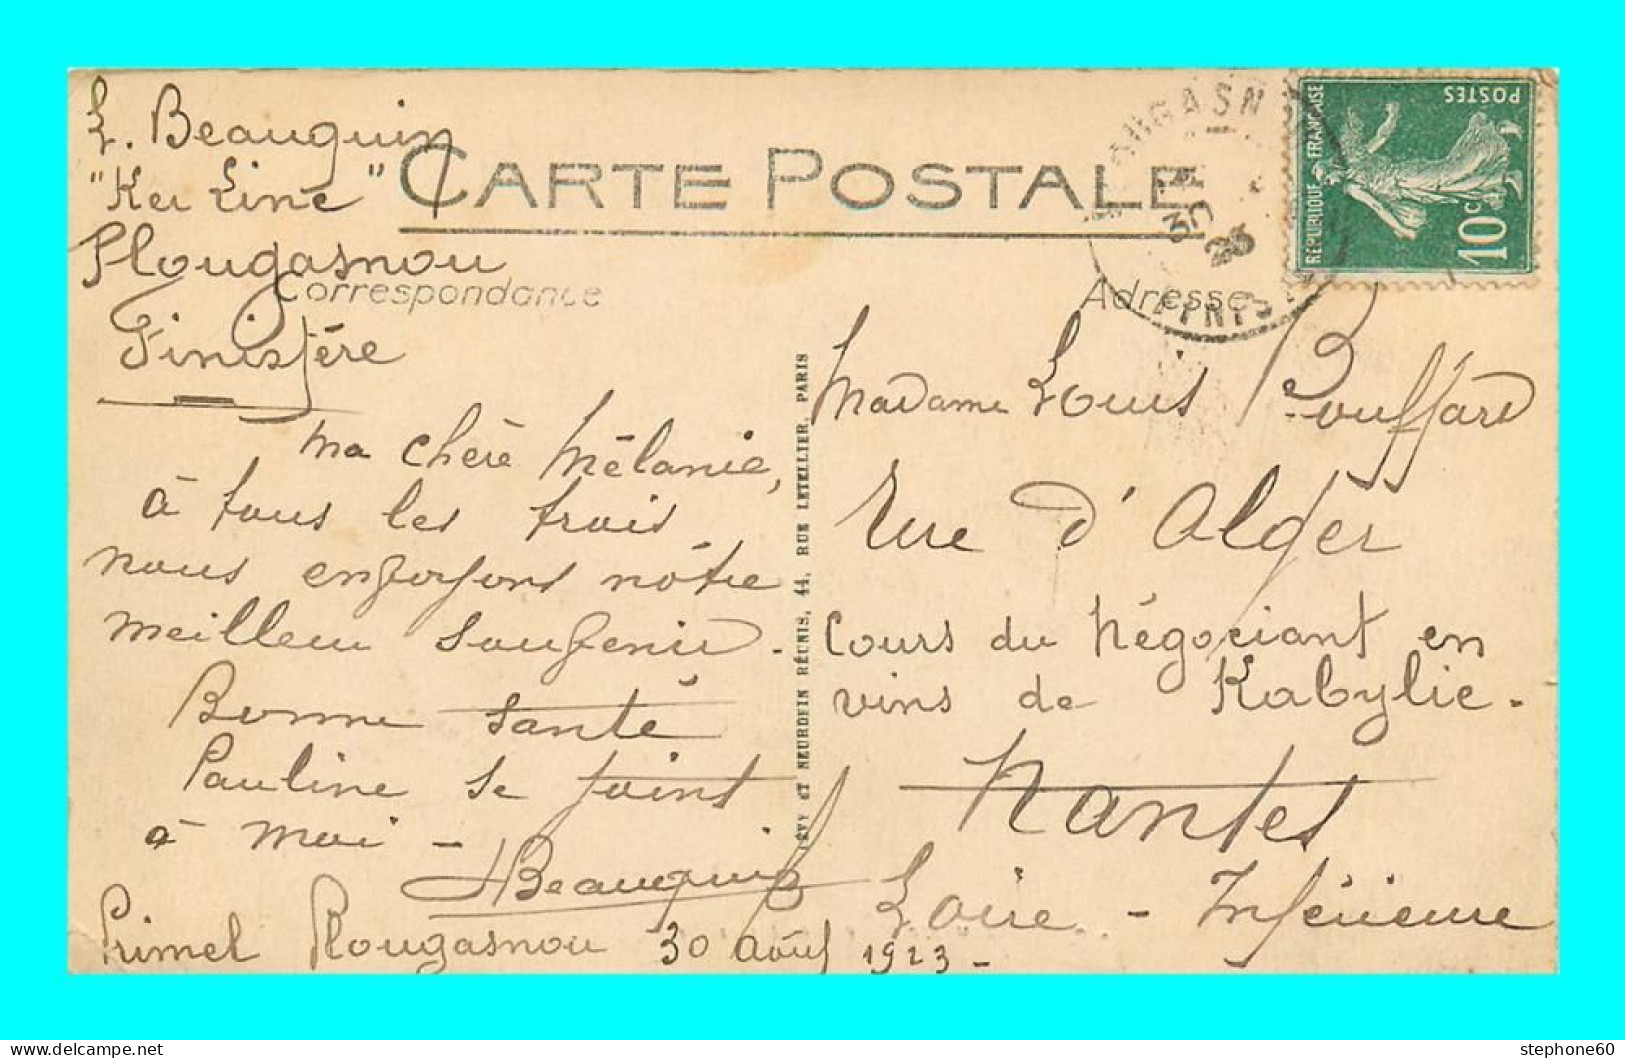 L. Beauguin
"Ker Line"
Plougasnou
Finistère
CARTE POSTALE
Correspondance
Ma chère Mélanie,
à tous les trois
nous envoyons nôtre
meilleur souvenir.
Bonne santé
Pauline se joint
à moi -
Beauguin
Primel Plougasnou 30 Août 1923 -
LÉVY ET NEURDEIN RÉUNIS, 44, RUE LETELLIER, PARIS
30
23
FINIS
POSTES
REPUBLIQUE FRANÇAISE
10c
Adresse
Madame Louis Bouffard
Rue d'Alger
Cours du Négociant en
vins de Kabylie.
Nantes
Loire - Inférieure
stephone60